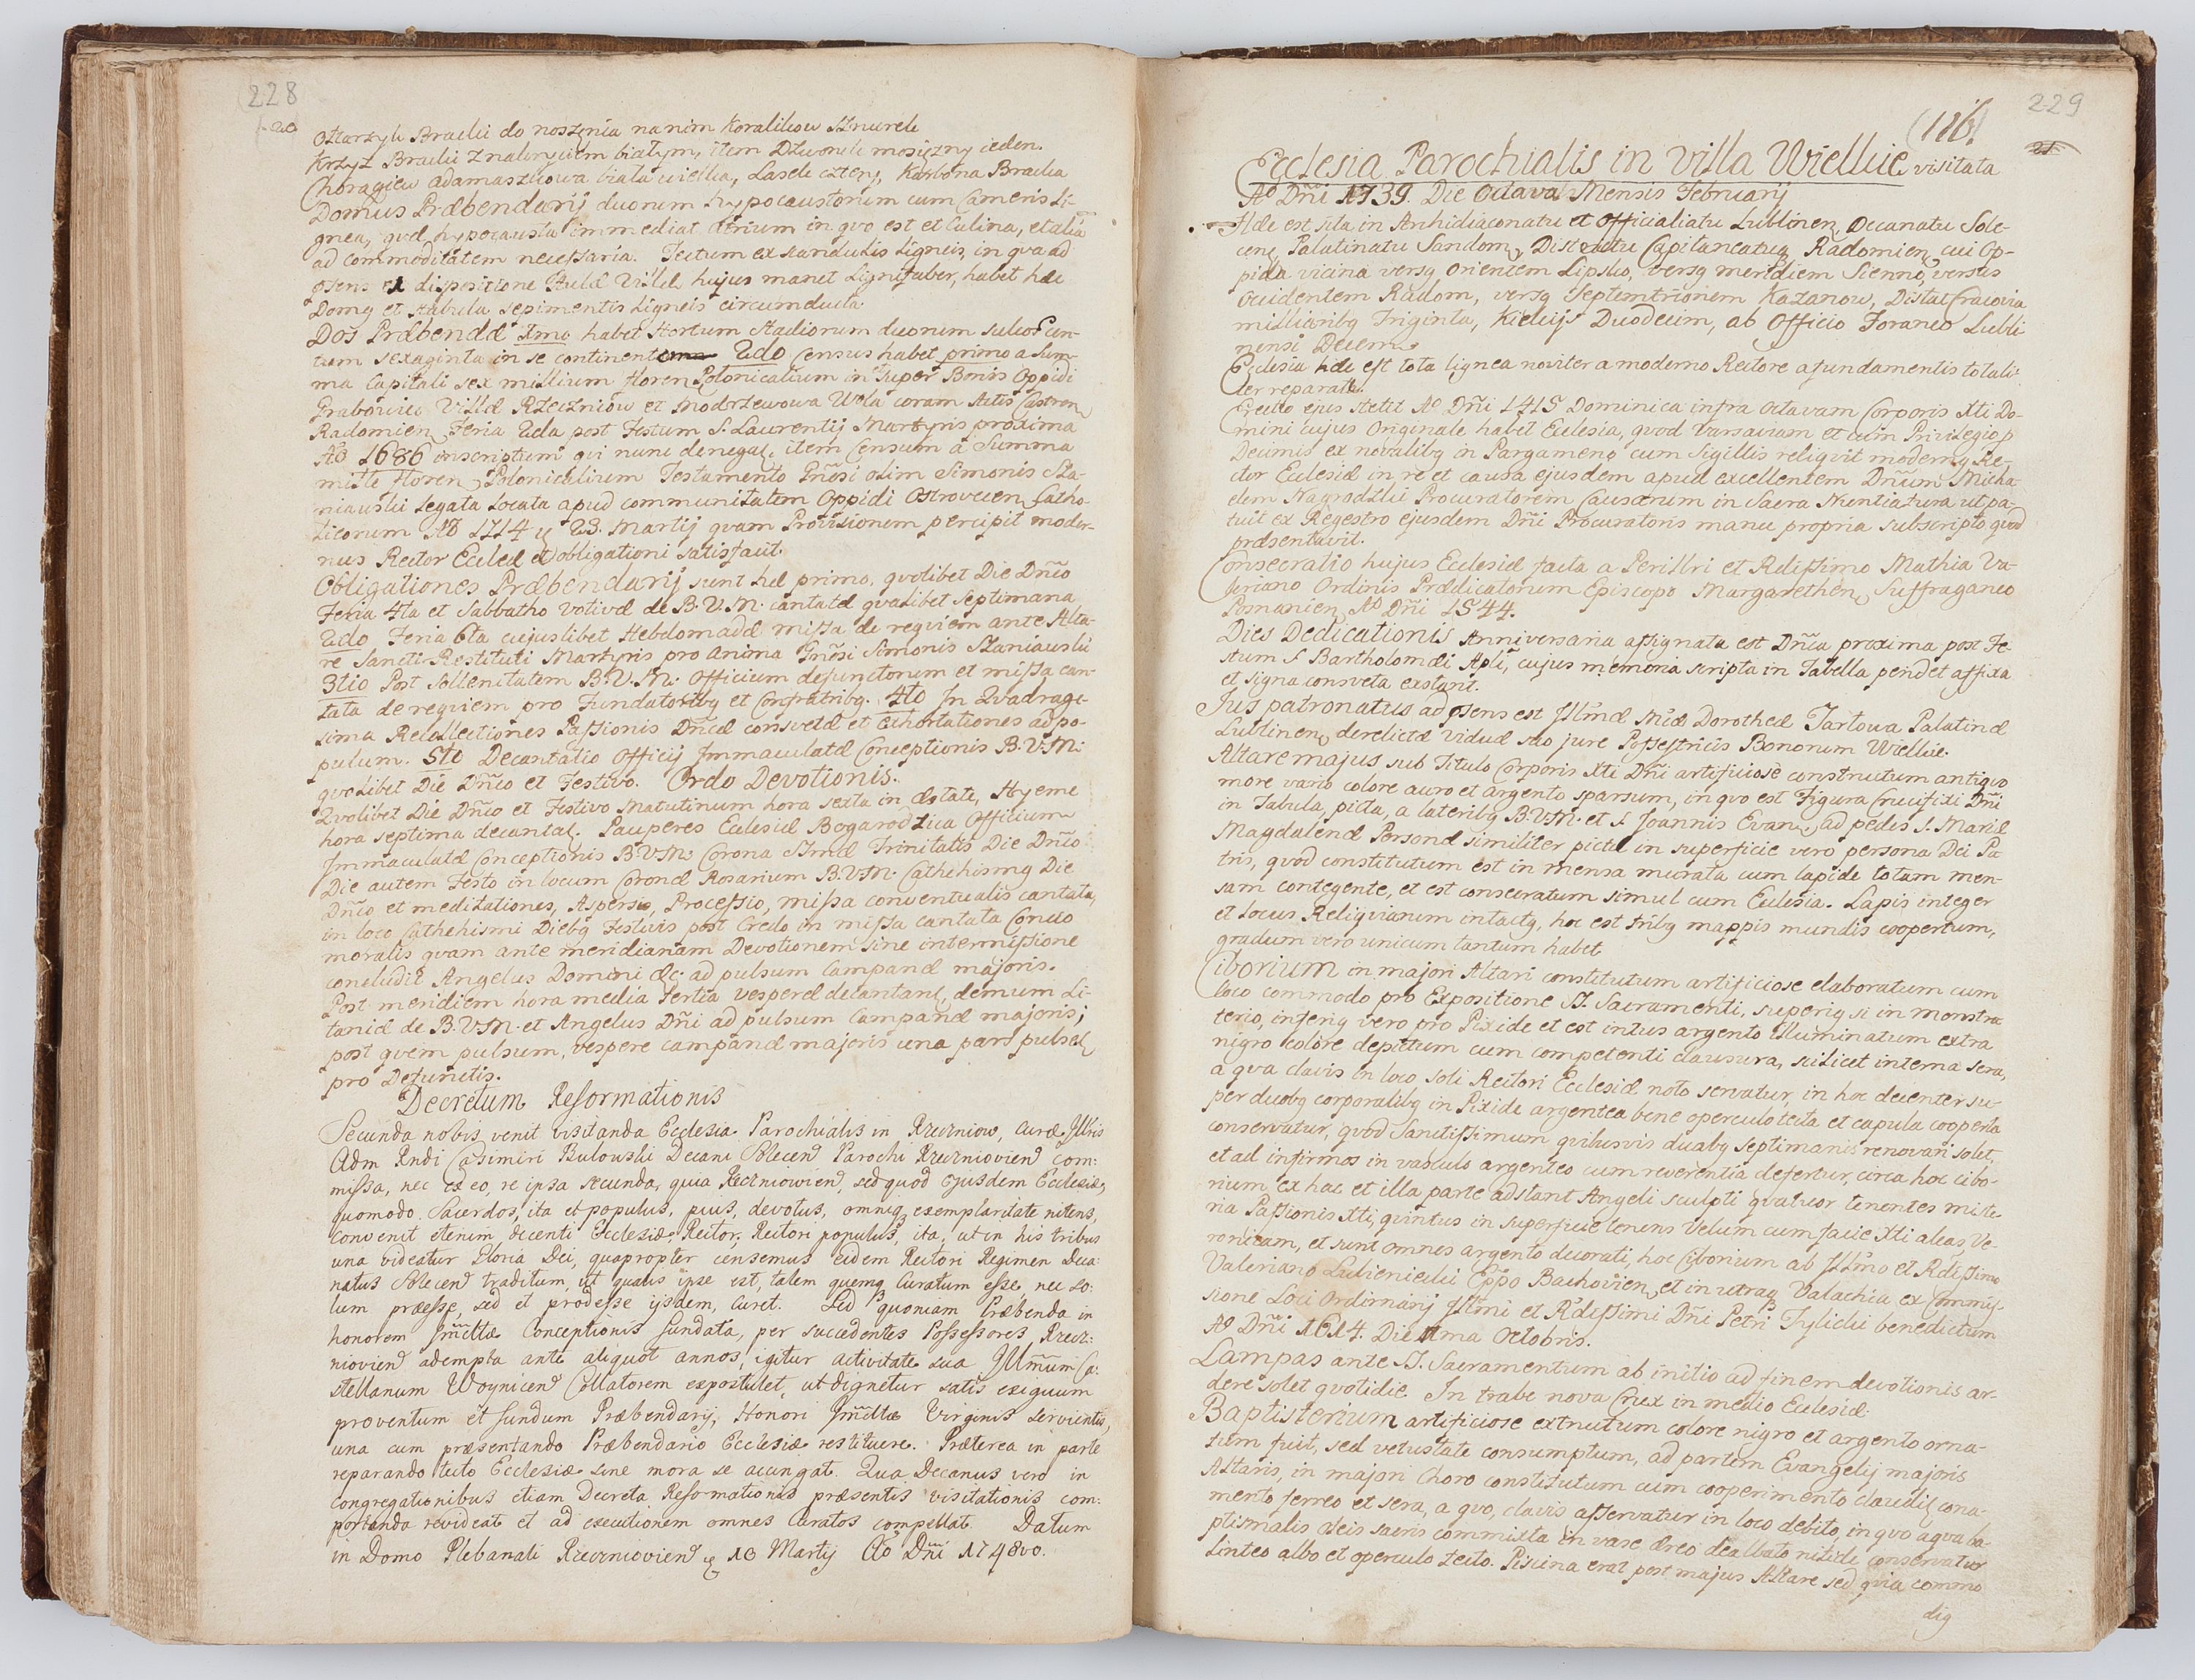 228
20
Ołtarzyk Bracki do noszenia na nim Koralikow Sznurek
Krzyż Bracki z nakryciem białym, item Dzwonek mosiężny ieden.
Choragiew adamaszkowa biała wielka, Laseki cztery, Karbona Bracka
Domus Præbendarij duorum hypocaustorum cum Cameris Li-
gnea, hypocausta immediat Atrium in qvo est et Culina, et alia
ad commoditatem necessaria. Tectum ex scandulis Ligneis, in qva ad
præsens ex dispositione Aulæ Villæ hujus manet Lignifaber, habet hæc
Domq et stabula sepimentis Ligneis circumducta.
Dos Præbendæ Imo habet Hortum Stadiorum duorum sulcos Cen-
tum sexaginta in se continent 2do Census habet primo a Sum-
ma Capitali sex millium floren Polonicalium in super Bonis Oppidi
Grabowiec Villæ Rzeczniow et Modrzewowa Wola coram Actis Castren
Radomien Feria 2da post Festum S. Laurentij Martyris proxima
Ao 1686 inscriptum qvi nunc denegat, item Censum a Summa
mille floren Polonicalium Testamento Gnosi olim Simonis Sta-
niawski Legata Locata apud communitatem Oppidi Ostrovecen Catho-
licorum Ao 1714 23. Martij qvam Provisionem percipit moder-
nus Rector Ecclæ et obligationi satisfacit.
Obligationes Præbendarij sunt hæ primo, qvolibet Die Dn̄co
Feria 4ta et Sabbatho Votivæ de B.V.M. cantatæ qvalibet septimana
2do Feria 6ta cujuslibet Hebdomadæ Missa de reqviem ante Alta-
re Sancti Restituti Martyris pro anima Gnosi Simonis Staniawski
3tio Post sollenitatem B.V.M. Officium defunctorum et missa can-
tata de reqviem pro Fundatoribq et Confratribq. 4to In Qvadrage-
sima Recollectiones Passionis Dn̄cæ consvetæ et Exhortationes ad po-
pulum. 5to Decantatio Officij Immaculatæ Conceptionis B.V.M:
qvolibet Die Dn̄co et Festivo. Ordo Devotionis.
Qvolibet Die Dn̄co et Festivo Matutinum hora sexta in æstate, Hyeme
hora septima decantat. Pauperes Ecclesiæ Bogarodzica Officium
Immaculatæ Conceptionis B.V.M: Corona SSmæ Trinitatis Die Dn̄co
Die autem Festo in locum Coronæ Rosarium B.V.M. Cathehismq Die
Dn̄co et meditationes, Aspersio, Processio, missa conventualis cantata,
in loco Cathehismi Diebq Festivis post Credo in missa cantata Concio
moralis qvam ante meridianam Devotionem sine intermissione
concludit Angelus Domini &c: ad pulsum Campanæ majoris.
Post meridiem hora media tertia vesperæ decantant, demum Li-
taniæ de B.V.M. et Angelus Dn̄i ad pulsum Campanæ majoris;
post qvem pulsum, vespere campanæ majoris una pars pulsat
pro Defunctis.
Decretum Reformationis
Secunda nobis venit visitanda Ecclesia Parochialis in Rzeczniow, curæ Illris
Adm Rndi Casimiri Bulowski Decani Solecen Parochi Rzeczniovien com:
missa, nec ex eo, re ipsa secunda, quia Rzeczniowien, sed quod Ejusdem Ecclesiæ,
quomodo Sacerdos, ita et populus, pius, devotus, omniq exemplaritate nitens,
convenit etenim, decenti Ecclesiæ, Rector, Rectori populus, ita, ut in his tribus
una videatur Gloria Dei, quapropter censemus eidem Rectori Regimen Deca:
natus Solecen traditum, ut qualis ipse est, talem quemq Curatum esse, nec so:
lum præesse, sed et prodesse ijsdem, curet. Sed quoniam Præbenda in
honorem Imcltæ Conceptionis fundata, per succedentes Possessores Rzecz:
niovien adempta ante aliquot annos, igitur activitate sua Illmum Ca:
stellanum Woynicen Collatorem expostulet, ut dignetur satis exiguum
proventum et fundum Præbendarij, Honori Imcltæ Virginis servientis,
una cum præsentando Præbendario Ecclesiæ restituere. Præterea in parte
reparando tecto Ecclesiæ sine mora se accingat. Qua Decanus vero in
congregationibus etiam Decreta Reformationis præsentis visitationis com:
portanda revideat et ad executionem omnes Curatos compellat. Datum
in Domo Plebanali Rzeczniovien 10 Martij Ao Dn̄i 1748vo.
229
(116)
21
Ecclesia Parochialis in Villa Wielkie visitata
Ao Dn̄i 1739. Die Octava Mensis Februarij
Hæc est sita in Archidiaconatu et Officialiatu Lublinen, Decanatu Sole-
cen, Palatinatu Sandom, Districtu Capitaneatuq Radomien, cui Op-
pida vicina versq Orientem Lipsko, versq meridiem Sienno, versus
Occidentem Radom, versq Septemtrionem Kazanow, Distat Cracovia
milliaribq Triginta, Kielcijs Duodecim, ab Officio Foraneo Lubli
nensi Decem.
Ecclesia hæc est tota lignea noviter a moderno Rectore a fundamentis totali-
ter reparata.
Erectio ejus stetit Ao Dn̄i 1415 Dominica infra Octavam Corporis Xti Do-
mini cujus Originale habet Ecclesia, qvod Varsaviam et cum Privilegio p
Decimis ex novalibq in Pargameno cum Sigillis reliqvit modernq Re-
ctor Ecclesiæ in re et causa ejusdem apud excellentem Dn̄um Micha-
elem Nagrodzki Procuratorem Causarum in Sacra Nuntiatura ut pa-
tuit ex Regestro ejusdem Dn̄i Procuratoris manu propria subscripto qvod
præsentavit.
Consecratio hujus Ecclesiæ facta a Perillri et Rdissimo Mathia Va-
leriano Ordinis Prædicatorum Episcopo Margarethen, Suffraganeo
Posnanien Ao Dn̄i 1544.
Dies Dedicationis Anniversaria assignata est Dn̄ica proxima post Fe-
stum S. Bartholomæi Apli, cujus memoria scripta in Tabella pendet affixa
et signa consveta exstant.
Jus patronatus ad præsens est Illmæ Mcæ Dorotheæ Tarłowa Palatinæ
Lublinen, derelictæ Viduæ suo jure Possestricis Bonorum Wielkie.
Altare majus sub Titulo Corporis Xti Dn̄i artificiosè constructum antiqvo
more vario colore auro et argento sparsum, in qvo est Figura Crucifixi Dn̄i
in Tabula, picta, a lateribq B.V.M. et S. Joannis Evan, ad pedes S. Mariæ
Magdalenæ Personæ similiter pictæ in superficie vero persona Dei Pa-
tris, qvod constitutum est in mensa murata cum lapide totam men-
sam contegente, et est consecratum simul cum Ecclesia. Lapis integer
et locus Reliqviarum intactq, hoc est tribq mappis mundis coopertum,
gradum vero unicum tantum habet.
Ciborium in majori Altari constitutum artificiose elaboratum cum
loco commodo pro Expositione SS. Sacramenti, superiq si in monstra
terio, inferiq vero pro Pixide et est intus argento illuminatum extra
nigro colore depictum cum competenti clausura, scilicet interna sera,
a qva clavis in loco soli Rectori Ecclesiæ noto servatur, in hoc decenter su-
per duobq corporalibq in Pixide argentea bene operculo tecta et capula cooperta
conservatur, qvod Sanctissimum qvibusvis duabq septimanis renovari solet,
et ad infirmos in vasculo argenteo cum reverentia defertur, circa hoc cibo-
rium ex hac et illa parte adstant Angeli sculpti qvatuor tenentes miste-
ria Passionis Xti, qvintus in superficie tenens Velum cum facie Xti alias Ve-
ronicam, et sunt omnes argento decorati, hoc Ciborium ab Illmo et Rdissimo
Valeriano Lubieniecki Eppo Bachovien, et in utraq Valachia ex Commis-
sione Loci Ordinarij Illmi et Rdissimi Dn̄i Petri Tylicki benedictum
Ao Dn̄i 1614. Die 1ma Octobris.
Lampas ante SS. Sacramentum ab initio ad finem devotionis ar-
dere solet qvotidie. In trabe nova Crux in medio Ecclesiæ.
Baptisterium artificiose extructum colore nigro et argento orna-
tum fuit, sed vetustate consumptum, ad partem Evangelij majoris
Altaris, in majori Choro constitutum cum cooperimento claudit cona-
mento ferreo et sera, a qvo, clavis asservatur in loco debito, in qvo aqva ba-
ptismalis oleis sacris commixta in vase æreo dealbato nitide conservatur
Linteo albo et operculo tecto. Piscina erat post majus Altare sed qvia commo
diq